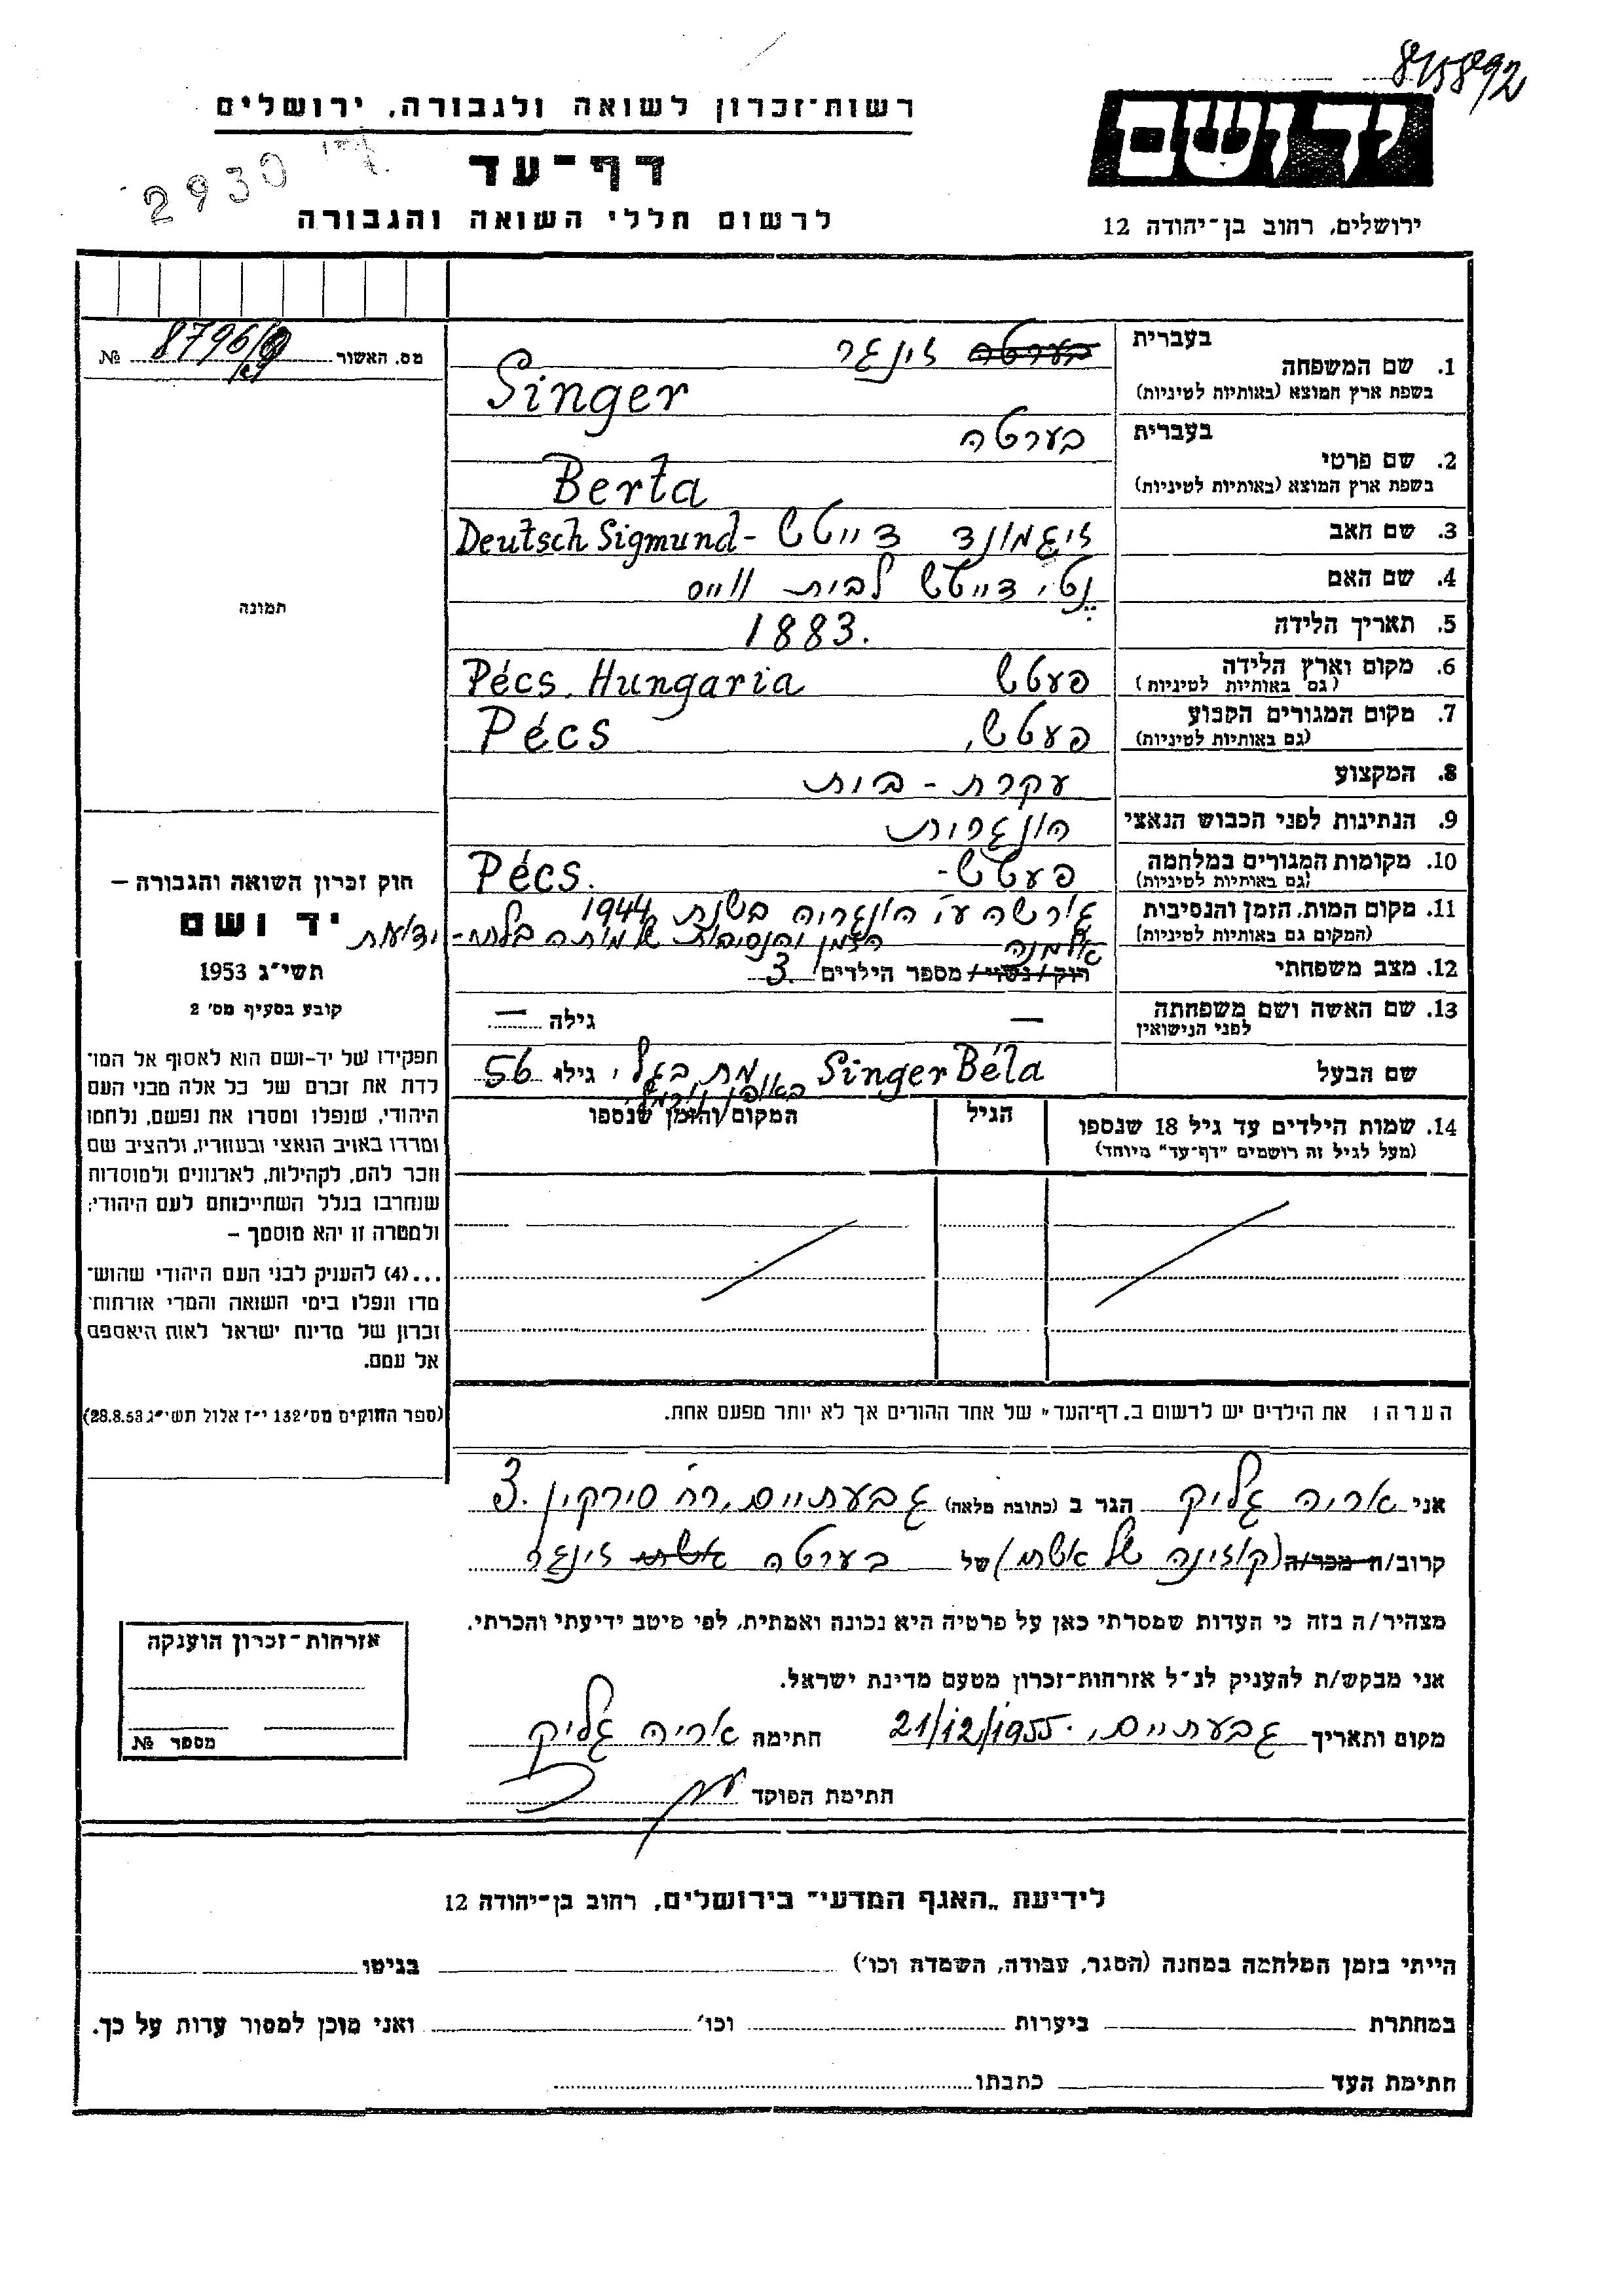 815892
רשות־זכרון לשואה ולגבורה, ירושלים
יד ושם
דף־עד
2930
לרשום חללי השואה והגבורה
ירושלים, רחוב בן־יהודה 12
מס. האשור 8796/ №
בעברית
1. שם המשפחה
בשפת ארץ המוצא (באותיות לטיניות)
בערטה זינגר
Singer
בעברית
2. שם פרטי
בשפת ארץ המוצא (באותיות לטיניות)
בערטה
Berta
3. שם האב זיגמונד דייטש - Deutsch Sigmund
4. שם האם נטי דייטש לבית ווייס
5. תאריך הלידה 1883.
6. מקום וארץ הלידה פעטש Pécs. Hungaria
(גם באותיות לטיניות)
7. מקום המגורים הקבוע פעטש, Pécs
(גם באותיות לטיניות)
8. המקצוע עקרת - בית
9. הנתינות לפני הכבוש הנאצי הונגרית
10. מקומות המגורים במלחמה פעטש - Pécs.
(גם באותיות לטיניות)
11. מקום המות, הזמן והנסיבות גורשה ע"י הונגריה בשנת 1944
(המקום גם באותיות לטיניות) הזמן והנסיבות של מותה בלתי - ידועות
12. מצב משפחתי אלמנה
רוק/נשוי/ מספר הילדים 3.
13. שם האשה ושם משפחתה — גילה —
לפני הנישואין
שם הבעל Singer Béla מת בגלי, גילו 56
באופן נורמלי
14. שמות הילדים עד גיל 18 שנספו הגיל המקום והזמן שנספו
(מעל לגיל זה רושמים "דף־עד" מיוחד)
הערה: את הילדים יש לרשום ב„דף־העד" של אחד ההורים אך לא יותר מפעם אחת.
תמונה
חוק זכרון השואה והגבורה —
יד ושם
תשי"ג 1953
קובע בסעיף מס' 2
תפקידו של יד־ושם הוא לאסוף אל המו־
לדת את זכרם של כל אלה מבני העם
היהודי, שנפלו ומסרו את נפשם, נלחמו
ומרדו באויב הנאצי ובעוזריו, ולהציב שם
וזכר להם, לקהילות, לארגונים ולמוסדות
שנחרבו בגלל השתייכותם לעם היהודי;
ולמטרה זו יהא מוסמך —
...(4) להעניק לבני העם היהודי שהוש־
מדו ונפלו בימי השואה והמרי אזרחות־
זכרון של מדינת ישראל לאות היאספם
אל עמם.
(ספר החוקים מס' 132 י"ז אלול תשי"ג 28.8.53)
אני אריה גליק הגר ב (כתובת מלאה) גבעתיים, רח' סירקין 3.
קרוב/ה מכר/ה (קוזינה של אשתי) של בערטה אשתי זינגר
מצהיר/ה בזה כי העדות שמסרתי כאן על פרטיה היא נכונה ואמתית, לפי מיטב ידיעתי והכרתי.
אני מבקש/ת להעניק לנ"ל אזרחות־זכרון מטעם מדינת ישראל.
מקום ותאריך גבעתיים, 21/12/1955. חתימה אריה גליק
חתימת הפוקד
אזרחות־זכרון הוענקה
מספר №
לידיעת „האגף המדעי" בירושלים, רחוב בן־יהודה 12
הייתי בזמן המלחמה במחנה (הסגר, עבודה, השמדה וכו') בגיטו
במחתרת ביערות וכו' ואני מוכן למסור עדות על כך.
חתימת העד כתבתו